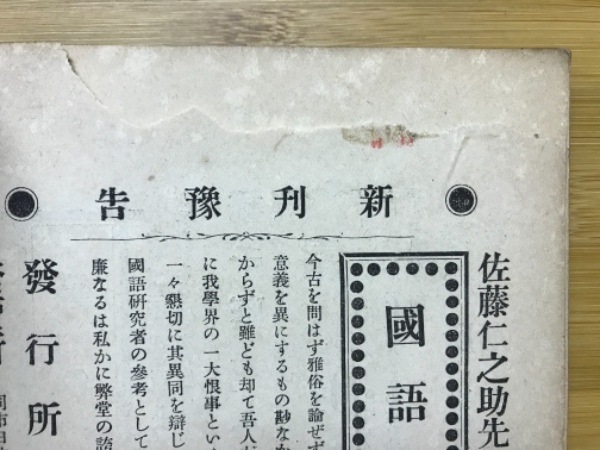 新刊豫告
佐藤仁之助先
國語
今古を問はず雅俗を論ぜず
意義を異にするもの尠なか
からずと雖ども却て吾人が
に我學界の一大恨事とい
一々懇切に其異同を辯じ
國語研究者の參考として
廉なるは私かに弊堂の誇
發行所